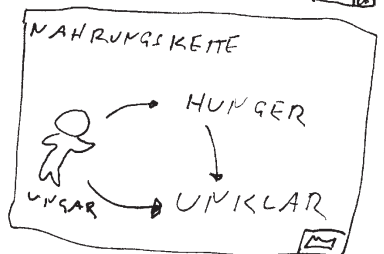 NAHRUNGSKETTE
HUNGER
UNGAR
UNKLAR